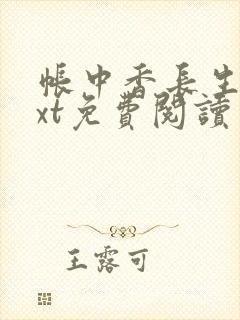 帳中香長生
xt免費閱讀
王露可